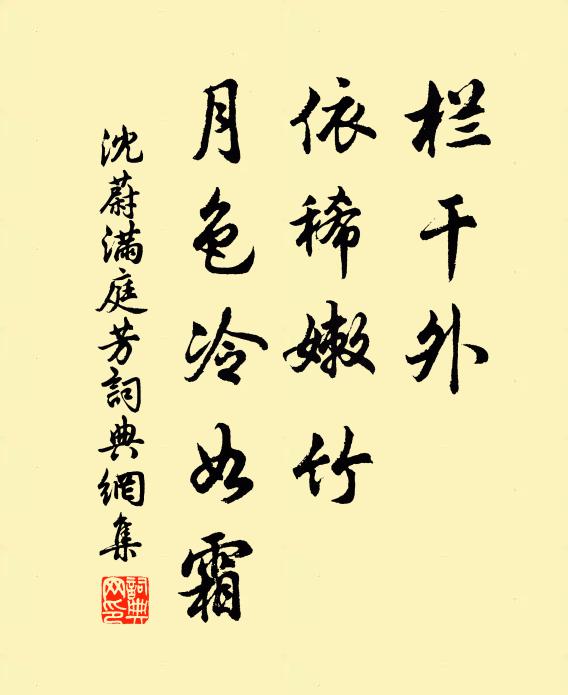 栏干外
依稀嫩竹
月色冷如霜
沈蔚满庭芳詞典網集
詞典网印